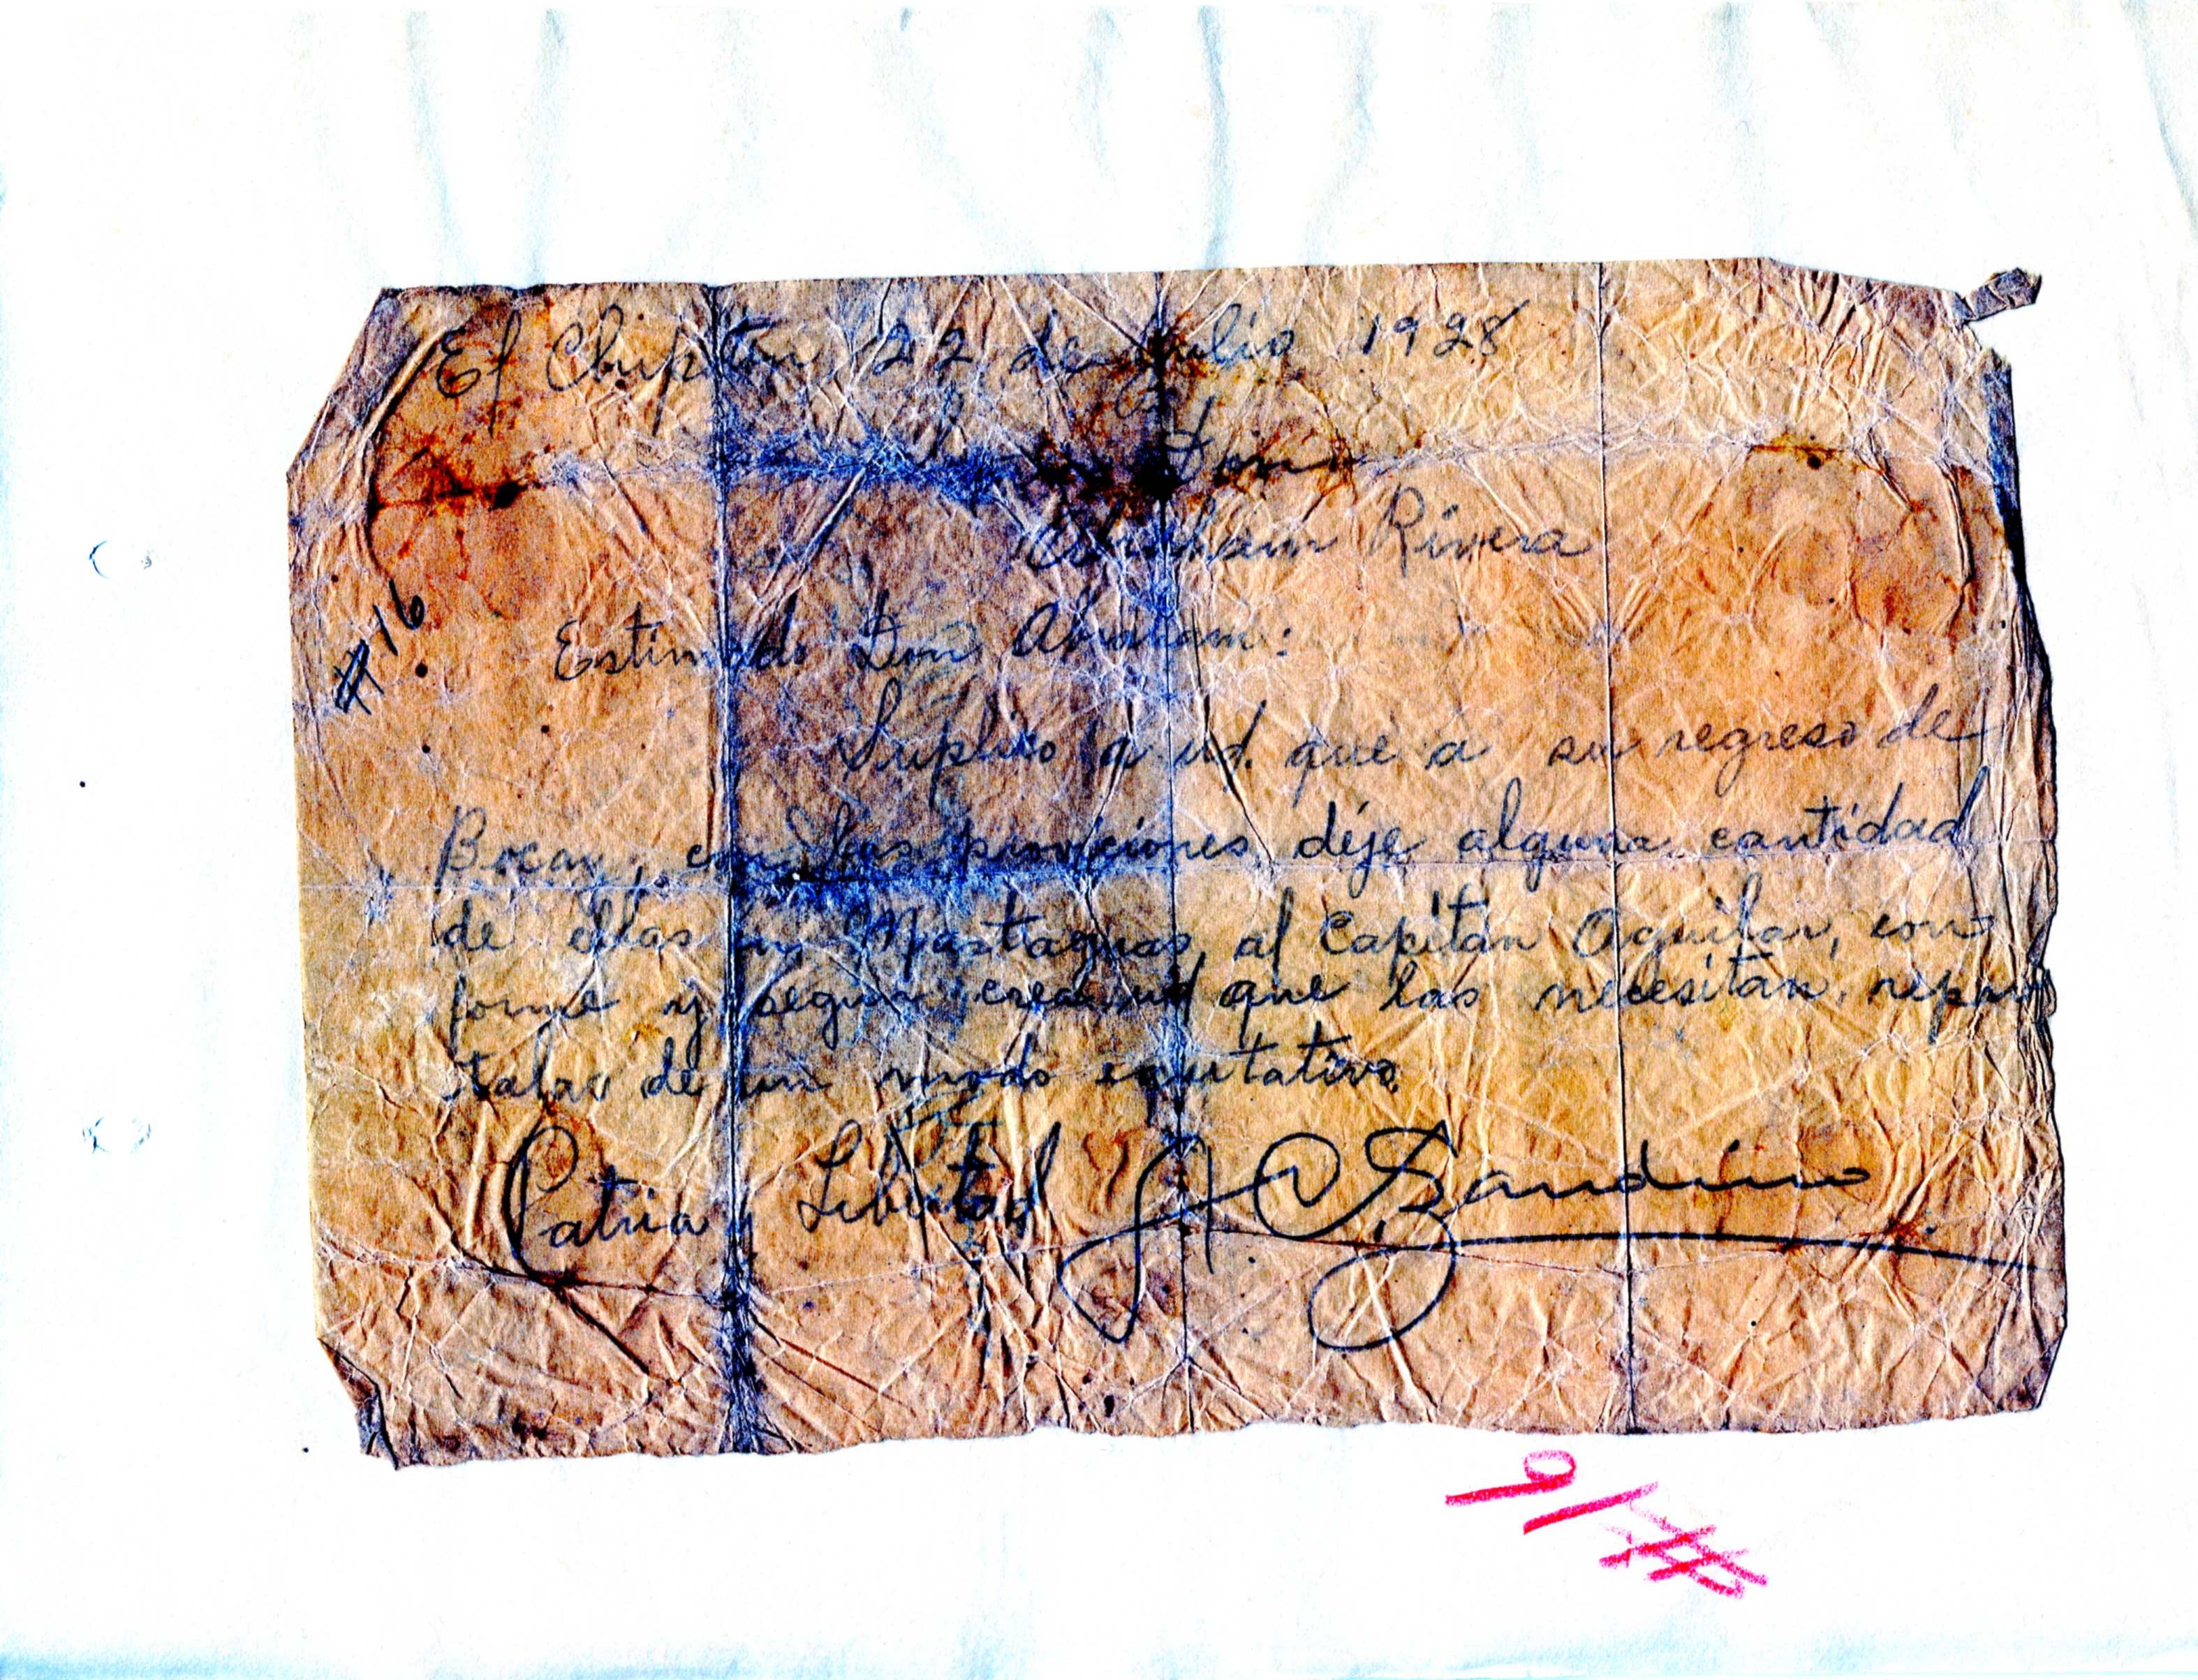 El Chipoton 22 de julio 1928
Don
Abraham Rivera
#16
Estimado Don Abraham:
Suplico a ud. que a su regreso de
Bocay, con las proviciones, déje alguna cantidad
de ellas en Mastaguas, al Capitán Aguilar, con
forme y segun crea ud que las necesitan, repar
talas de un modo equitativo.
Patria y Libertad A C Sandino
#16